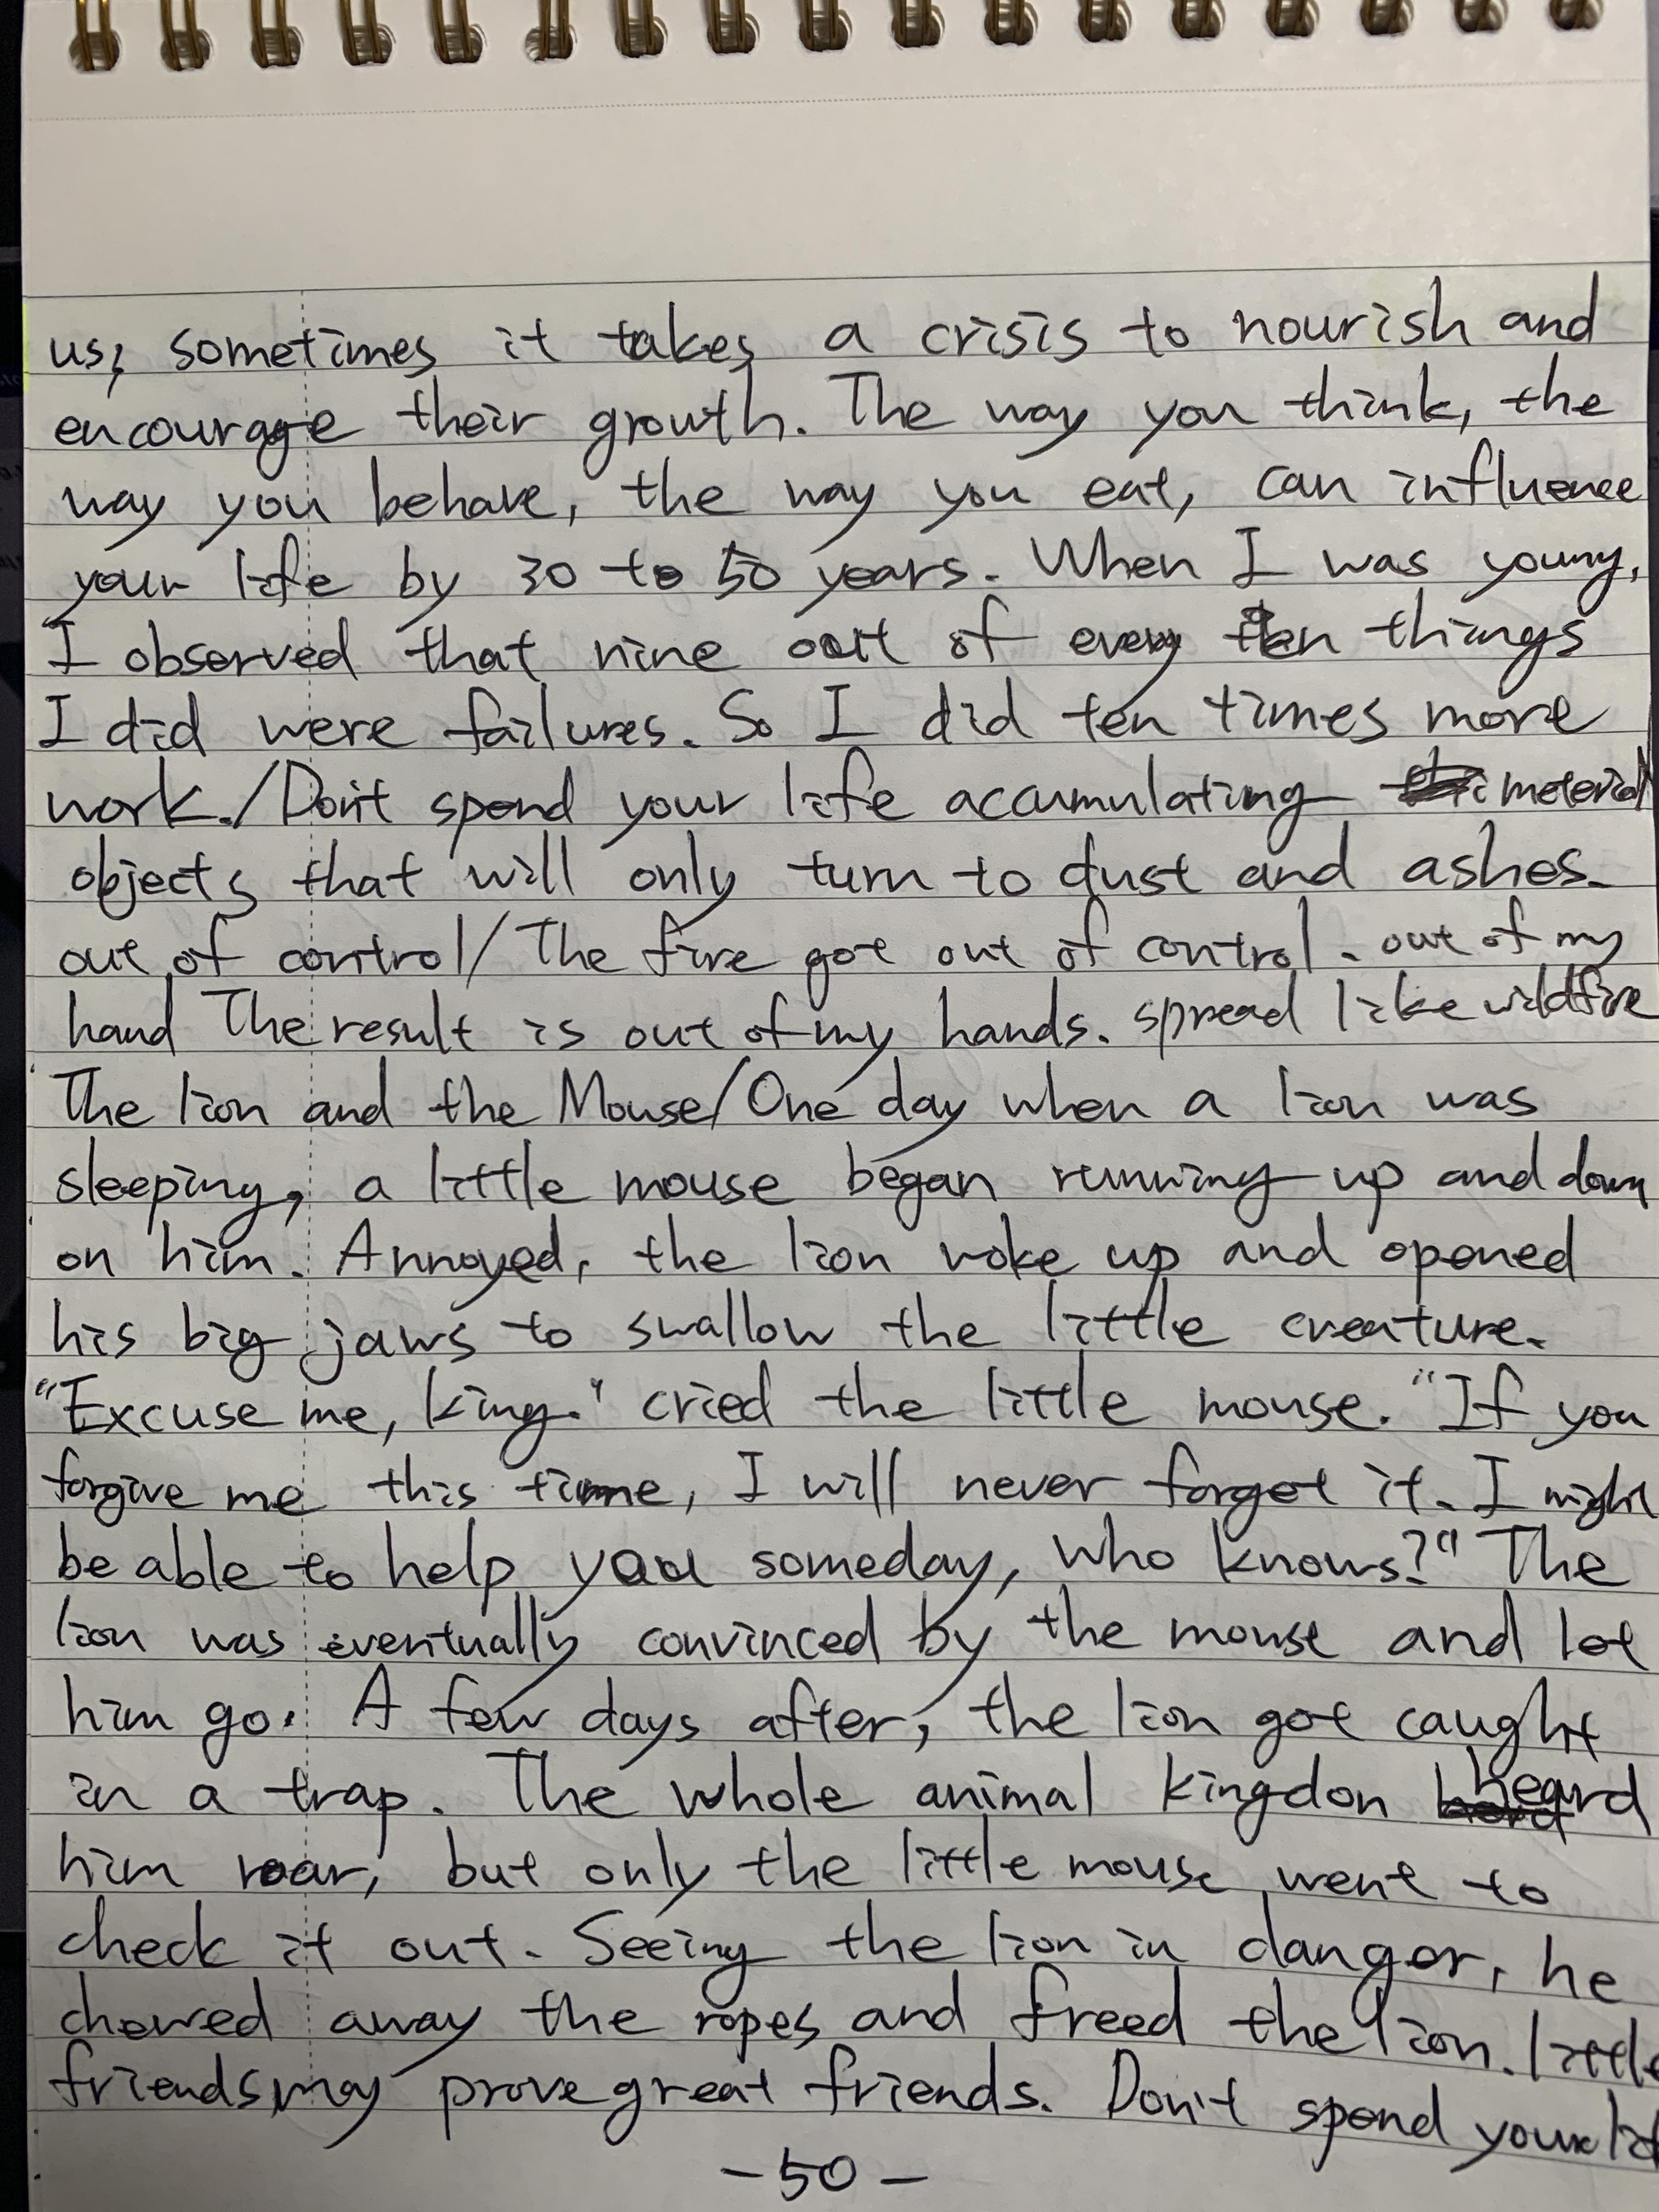 us; sometimes it takes a crisis to nourish and
encourage their growth. The way you think, the
way you behave, the way you eat, can influence
your life by 30 to 50 years. When I was young,
I observed that nine out of every ten things
I did were failures. So I did ten times more
work./Don't spend your life accumulating meterial
objects that will only turn to dust and ashes.
out of control/The fire got out of control. out of my
hand The result is out of my hands. spread like wildfire
The lion and the Mouse/One day when a lion was
sleeping, a little mouse began running up and down
on him. Annoyed, the lion woke up and opened
his big jaws to swallow the little creature.
"Excuse me, king." cried the little mouse. "If you
forgive me this time, I will never forget it. I might
be able to help you someday, who knows?" The
lion was eventually convinced by the mouse and let
him go. A few days after, the lion got caught
in a trap. The whole animal kingdon heard
him roar, but only the little mouse went to
check it out. Seeing the lion in danger, he
chewed away the ropes and freed the lion. little
friends may prove great friends. Don't spend your
-50-